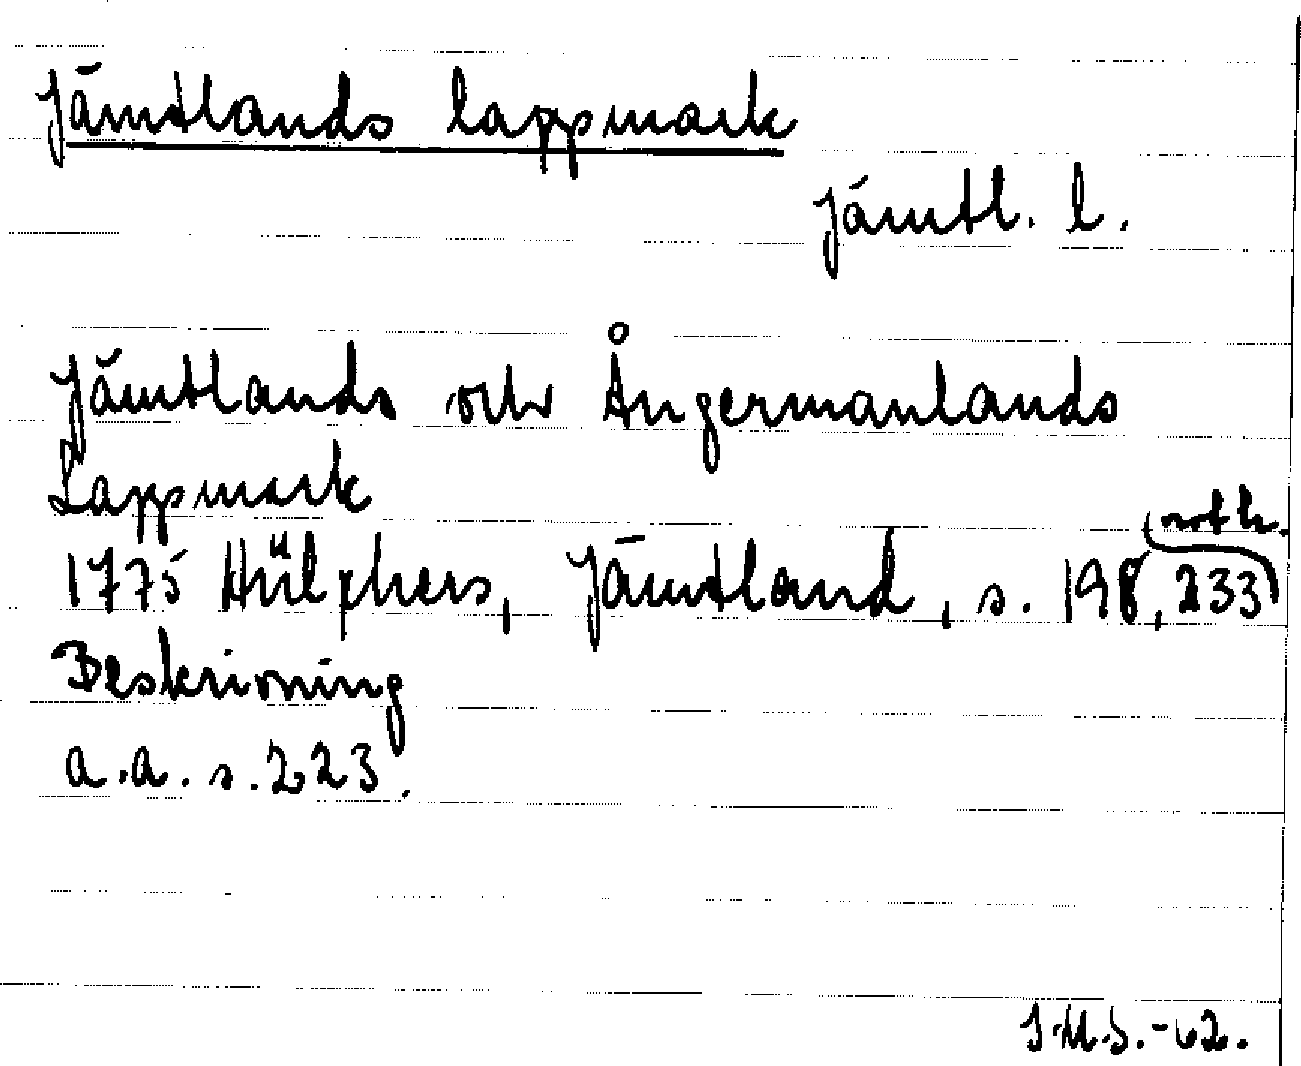 Jämtlands lappmark
Jämtl. l.
Jämtlands och Ångermanlands
Lappmark
1775 Hülphers, Jämtland, s. 198, 233
Beskrivning
a.a. s. 223.
I.M.S.-62.